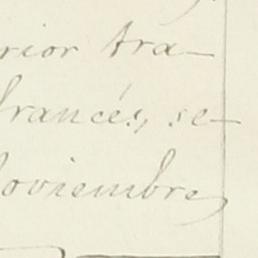 rior tra-
francés, se-
oviembre